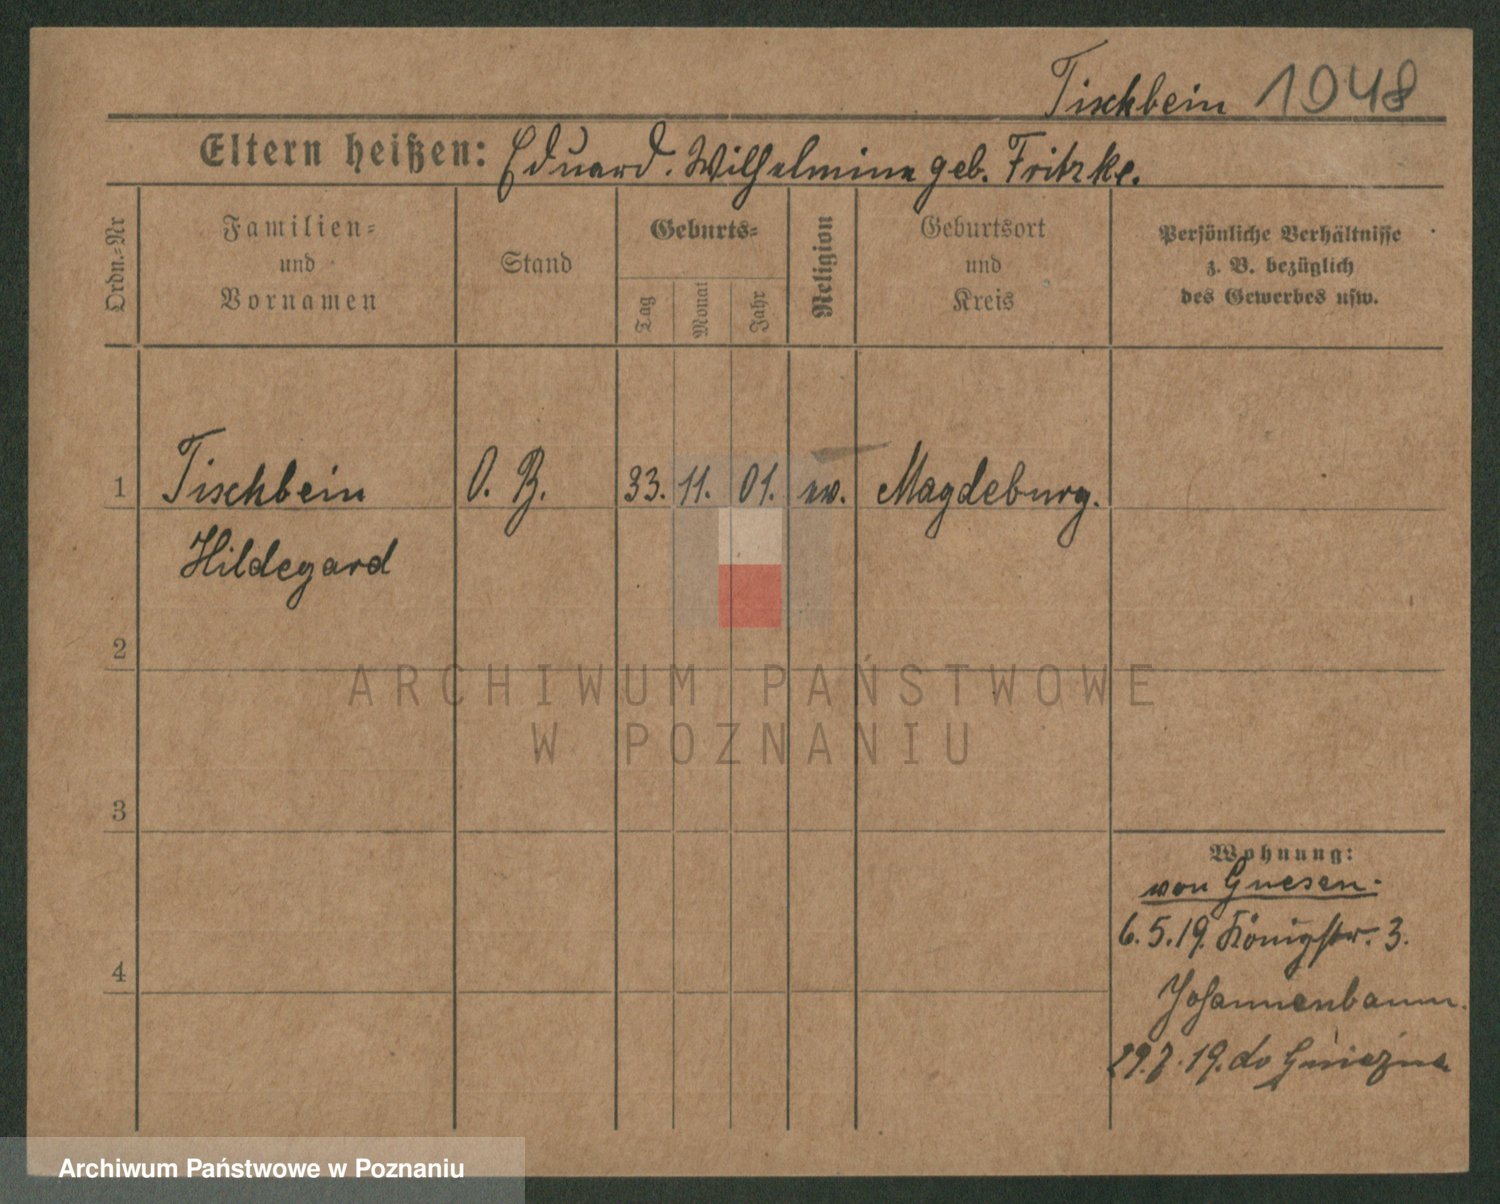 Tischbein 1048
Eltern heißen: Eduard. Wilhelmine geb. Fritzke.
Ordn.-Nr
Familien-
und
Vornamen
Stand
Geburts-
Tag
Monat
Jahr
Religion
Geburtsort
und
Kreis
Persönliche Verhältnisse
z. B. bezüglich
des Gewerbes usw.
1 Tischbein O. B. 33. 11. 01. ev. Magdeburg.
Hildegard
2
3
4
Wohnung:
von Gnesen.
6.5.19. Königstr. 3.
Johannenbaum.
29.7.19. do Gniezna
ARCHIWUM PAŃSTWOWE
W POZNANIU
Archiwum Państwowe w Poznaniu